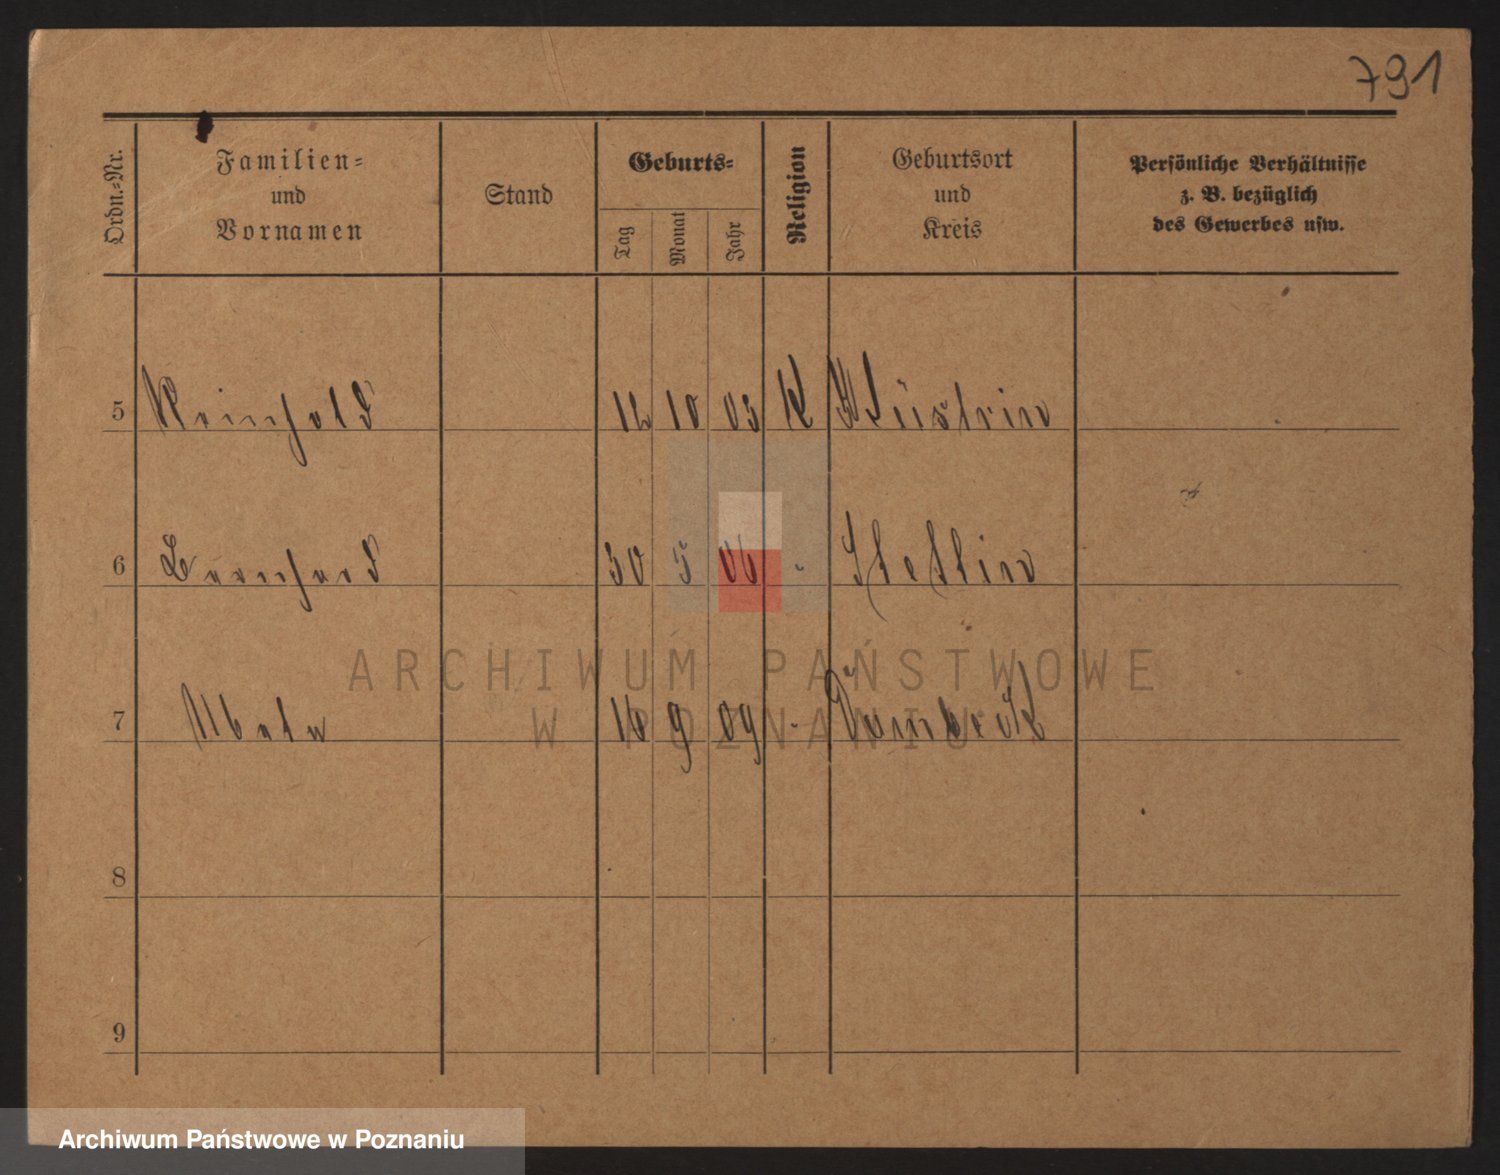 791
Ordn.-Nr.
Familien-
und
Vornamen
Stand
Geburts-
Tag
Monat
Jahr
Religion
Geburtsort
und
Kreis
Persönliche Verhältnisse
z. B. bezüglich
des Gewerbes usw.
5 Reinhold 12 10 03 K Küstrin
6 Bernhard 30 5 06 - Stettin
ARCHIWUM PAŃSTWOWE
7 16 9 09 -
W POZNANIU
8
9
Archiwum Państwowe w Poznaniu